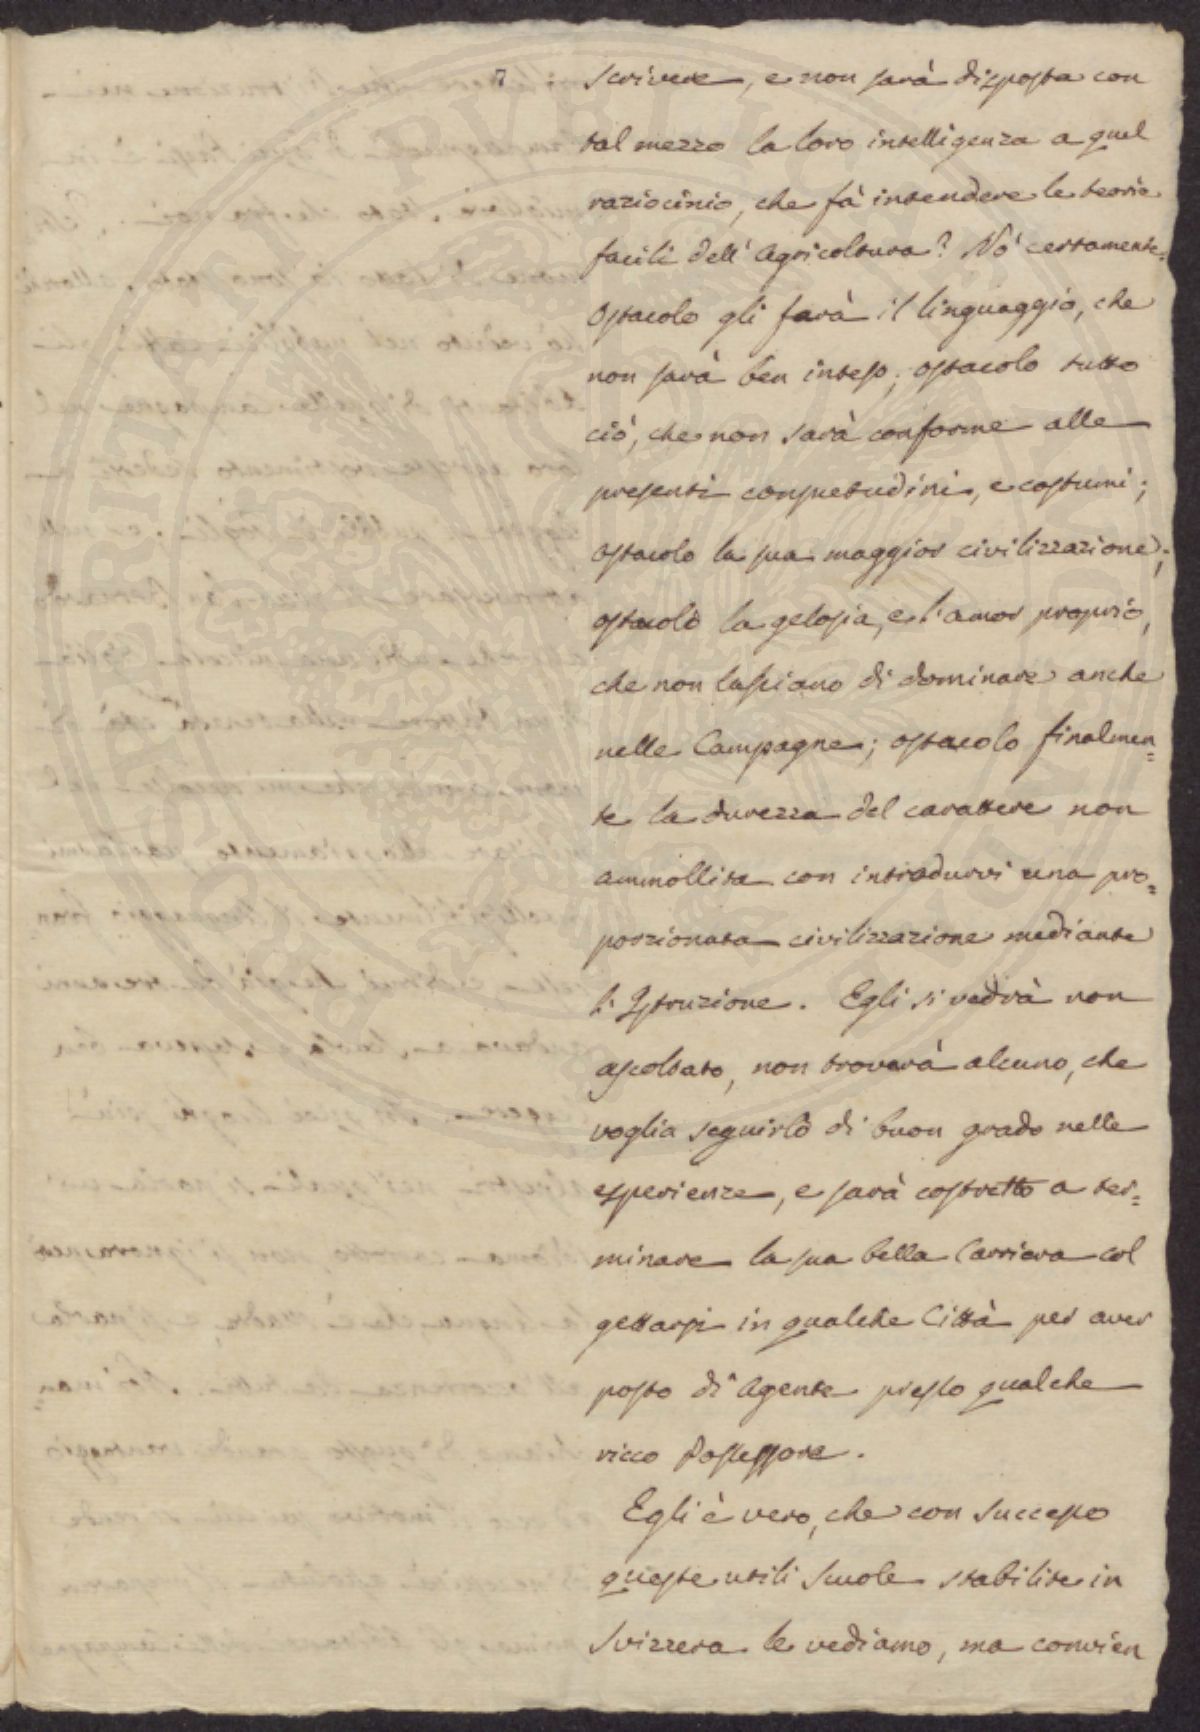 7
scrivere, e non sarà disposta con
tal mezzo la loro intelligenza a quel
raziocinio, che fà intendere le teorie
facili dell' Agricoltura? Nò certamente.
Ostacolo gli farà il linguaggio, che
non sarà ben inteso; ostacolo tutto
ciò, che non sarà conforme alle
presenti consuetudini, e costumi;
ostacolo la sua maggior civilizzazione;
ostacolo la gelosia, e l'amor proprio,
che non lasciano di dominare anche
nelle Campagne; ostacolo finalmen=
te la durezza del carattere non
ammollita con introdurvi una pro=
porzionata civilizzazione mediante
l' Istruzione. Egli si vedrà non
ascoltato, non troverà alcuno, che
voglia seguirlo di buon grado nelle
esperienze, e sarà costretto a ter=
minare la sua bella Carriera col
gettarsi in qualche Città per aver
posto di Agente presso qualche
ricco Possessore.
Egli è vero, che con successo
queste utili Scuole stabilite in
Svizzera le vediamo, ma convien